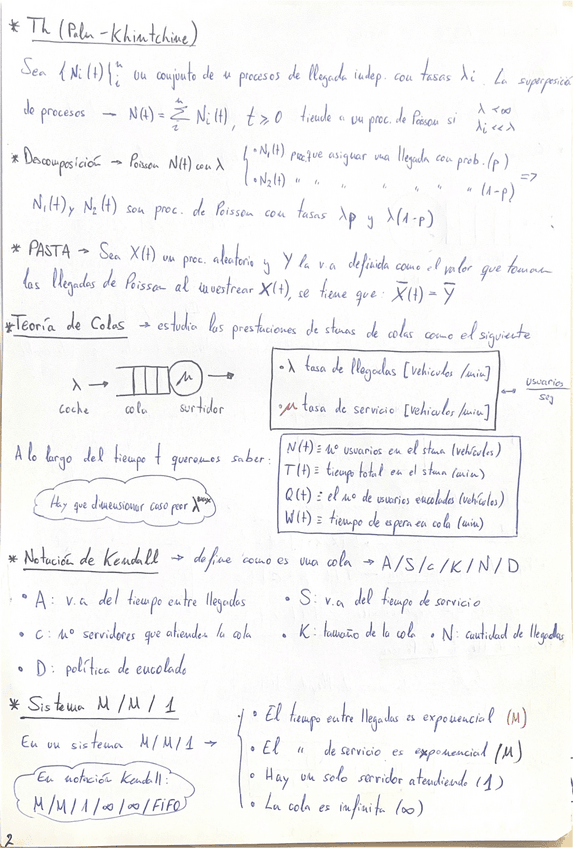 * Th (Palm-Khintchine)
Sea {Ni(t)}ᵢⁿ un conjunto de n procesos de llegada indep. con tasas λi. La superposición
de procesos → N(t) = Σᵢⁿ Ni(t), t ≥ 0 tiende a un proc. de Poisson si λ < ∞
λi << λ
* Descomposición → Poisson N(t) con λ { • N₁(t) asignar una llegada con prob. (p)
• N₂(t) " " " " " " (1-p) =>
N₁(t) y N₂(t) son proc. de Poisson con tasas λp y λ(1-p)
* PASTA → Sea X(t) un proc. aleatorio y Y la v.a definida como el valor que toman
las llegadas de Poisson al muestrear X(t), se tiene que: X̅(t) = Y̅
* Teoría de Colas → estudia las prestaciones de stmas de colas como el siguiente
λ → μ →
coche cola surtidor
• λ tasa de llegadas [vehiculos/min]
• μ tasa de servicio [vehiculos/min]
↔ usuarios/seg
A lo largo del tiempo t queremos saber:
Hay que dimensionar caso peor λᵐᵃˣ
N(t) ≡ nº usuarios en el stma (vehículos)
T(t) ≡ tiempo total en el stma (min)
Q(t) ≡ el nº de usuarios encolados (vehículos)
W(t) ≡ tiempo de espera en cola (min)
* Notación de Kendall → define como es una cola → A/S/c/K/N/D
• A: v.a del tiempo entre llegadas • S: v.a del tiempo de servicio
• c: nº servidores que atienden la cola • K: tamaño de la cola • N: cantidad de llegadas
• D: política de encolado
* Sistema M/M/1
En un sistema M/M/1 →
En notación Kendall:
M/M/1/∞/∞/FIFO
• El tiempo entre llegadas es exponencial (M)
• El " de servicio es exponencial (M)
• Hay un solo servidor atendiendo (1)
• La cola es infinita (∞)
2